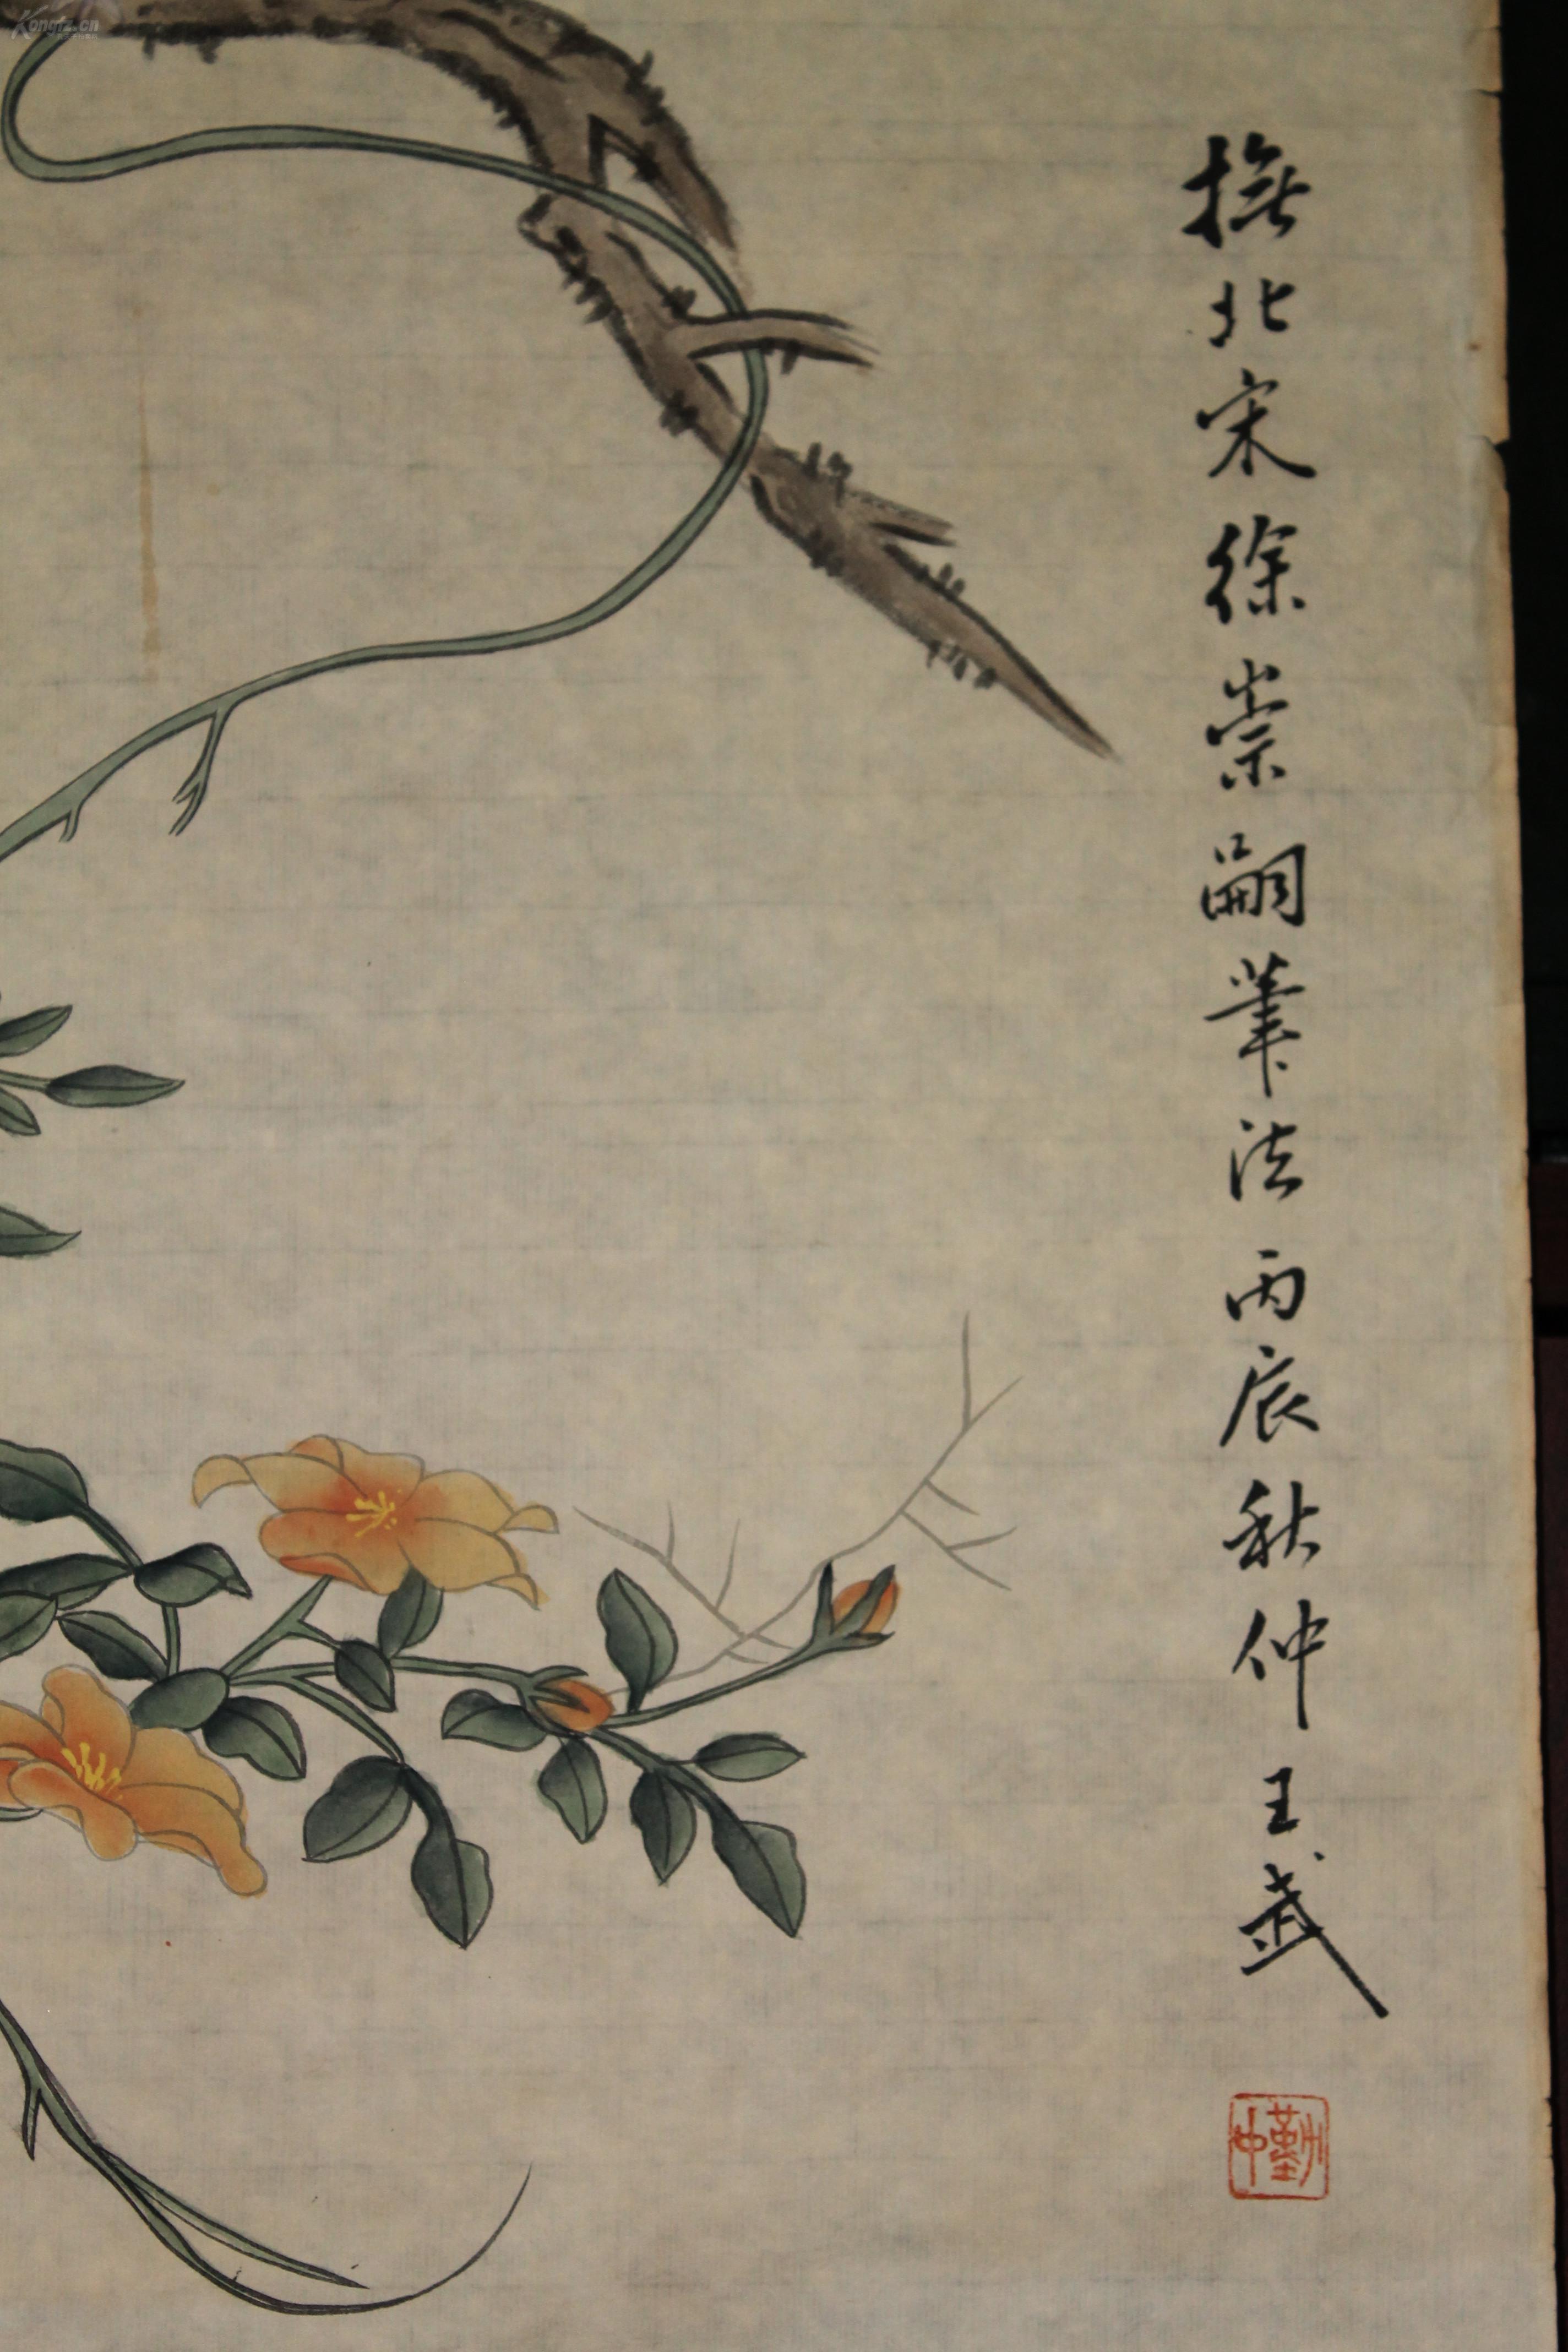 撫北宋徐崇嗣筆法丙辰秋仲王武
勤中
Kongfz.cn